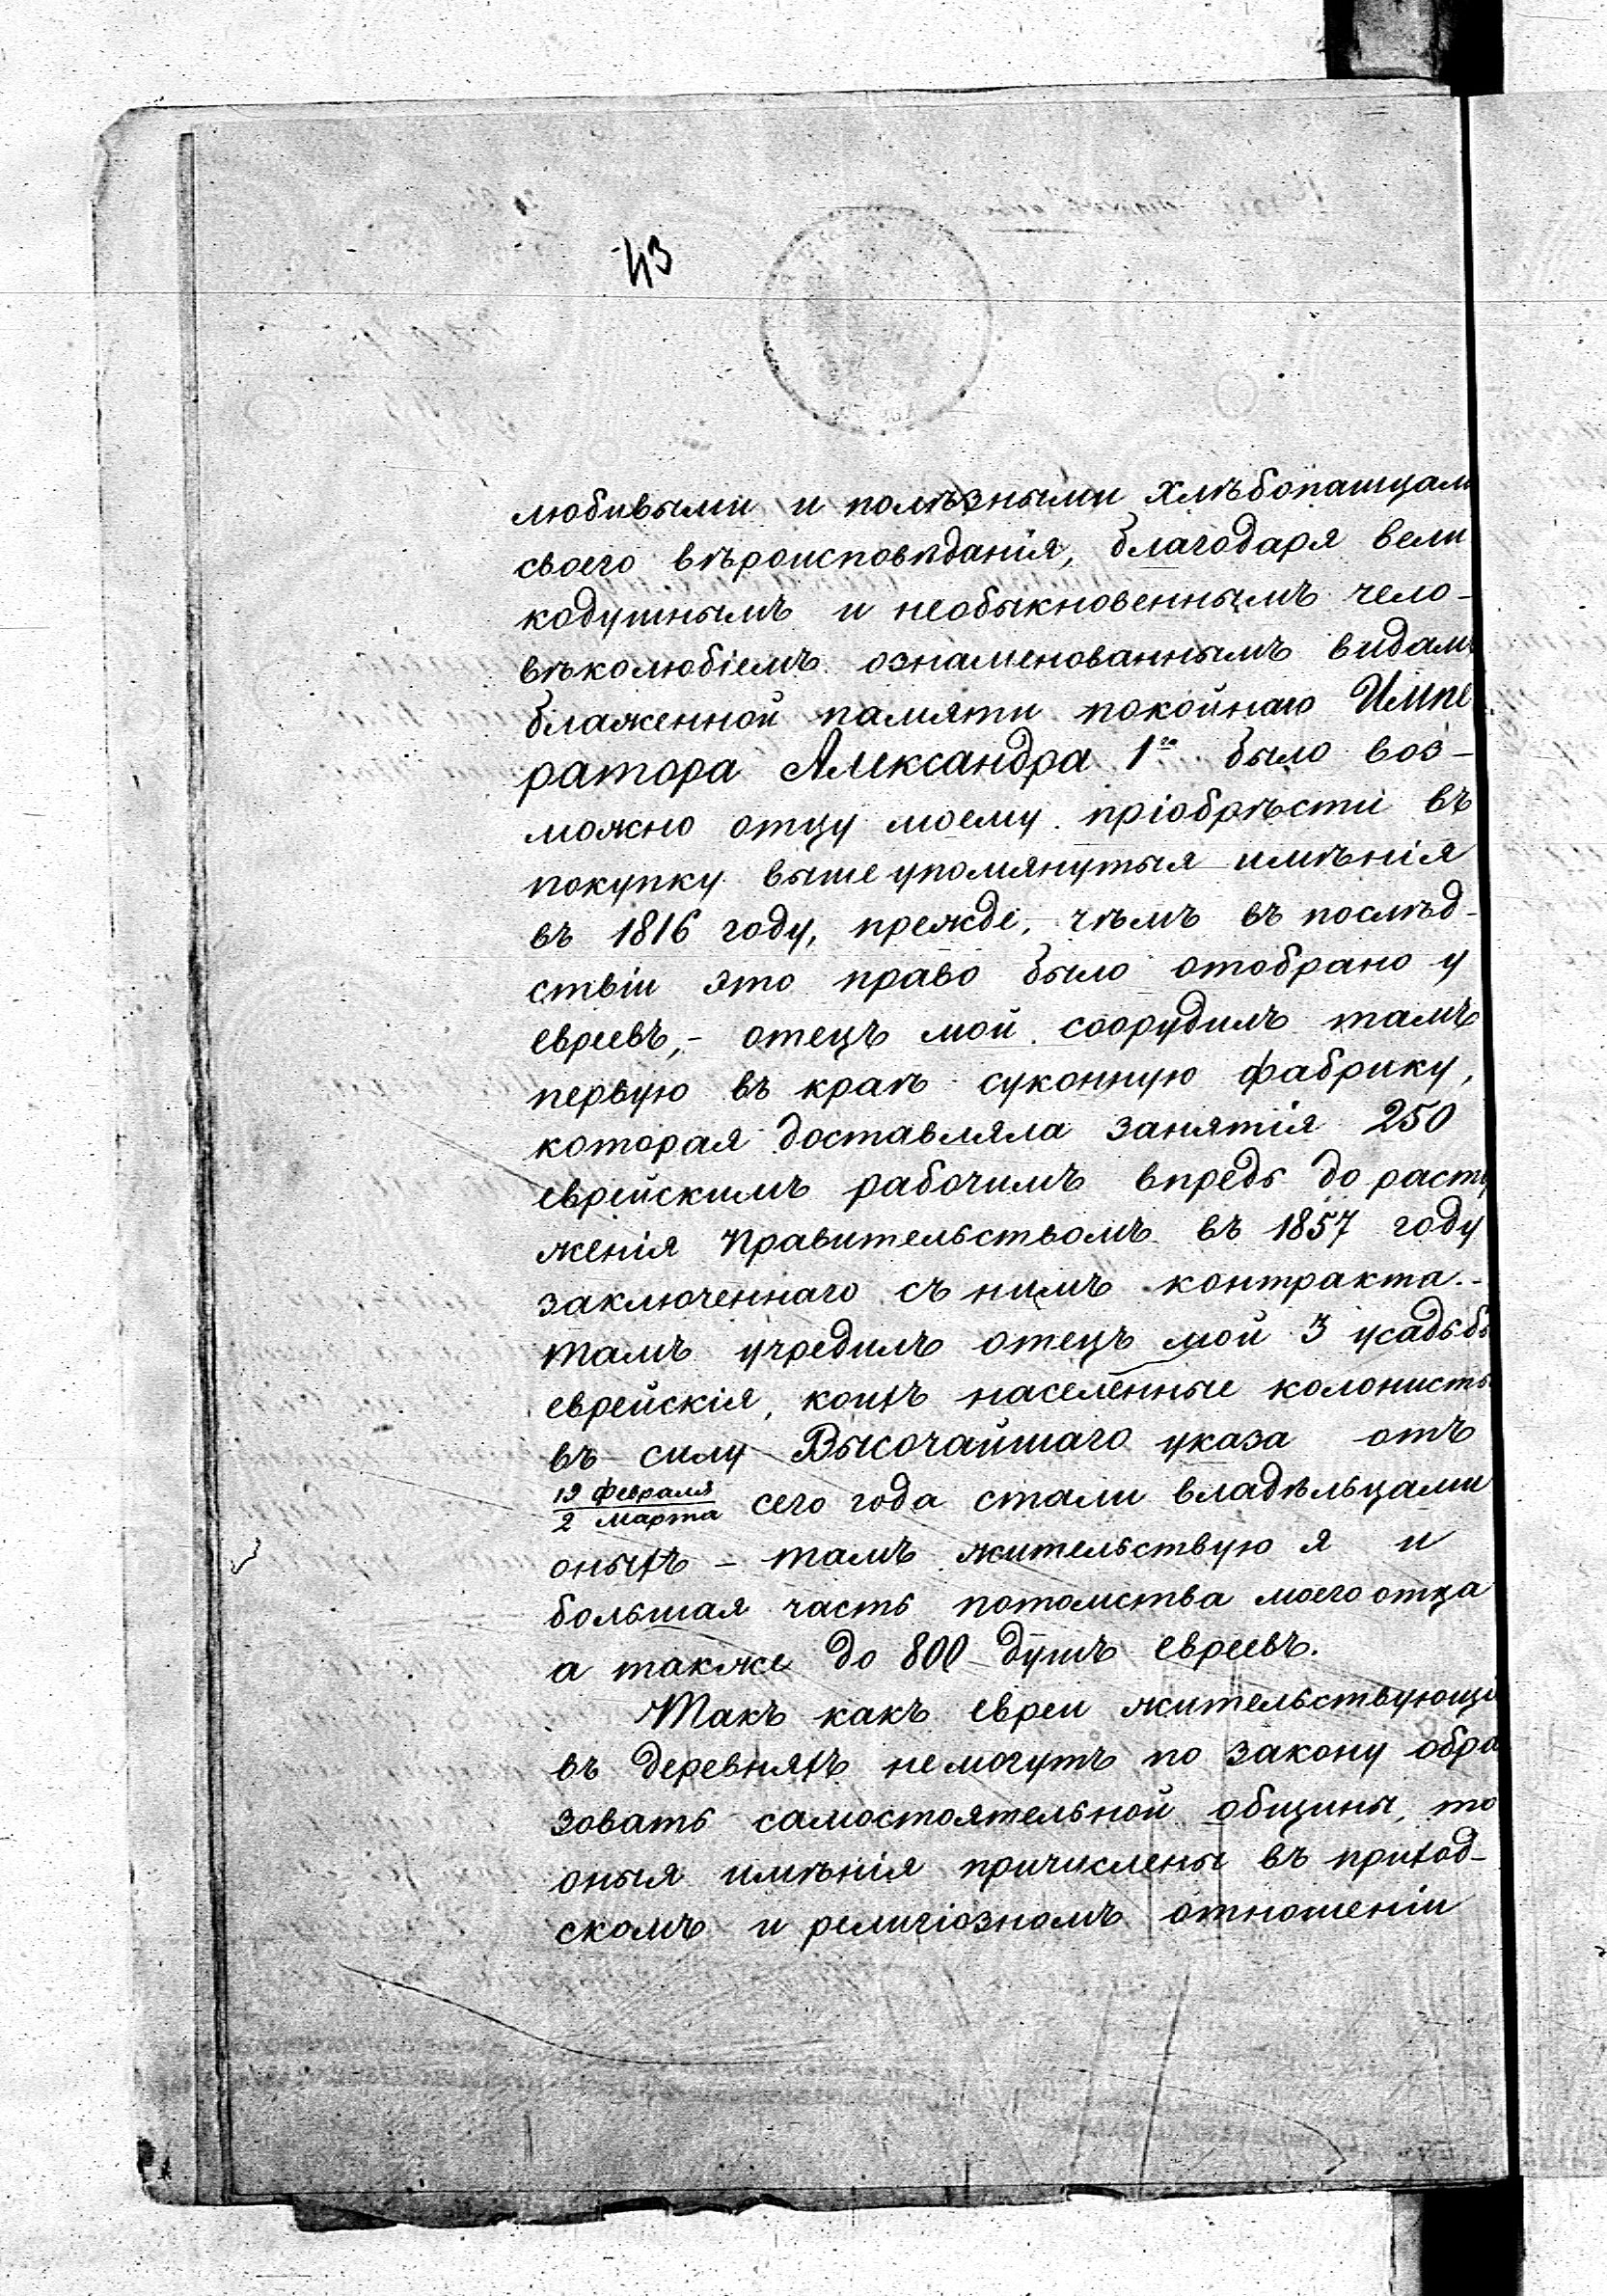 43
любивыми и полѣзными хлѣбопашцам
своего вѣроисповѣданія, благодаря вели
кодушнымъ и необыкновеннымъ чело-
вѣколюбіемъ ознаменованнымъ видам
блаженной памяти покойнаго Импе
ратора Александра 1го было воз-
можно отцу моему пріобрѣсти въ
покупку вышеупомянутыя имѣнія
въ 1816 году, прежде, чѣмъ въ послѣд-
ствіи это право было отобрано у
евреевъ,- отецъ мой соорудилъ тамъ
первую въ краѣ суконную фабрику,
которая доставляла занятія 250
еврейскимъ рабочимъ впредь до растр
женія Правительствомъ въ 1857 году
заключеннаго съ нимъ контракта.-
Тамъ учредилъ отецъ мой 3 усадьбы
еврейскія, коихъ населенные колонисты
въ силу Высочайшаго указа отъ
19 февраля / 2 марта сего года стали владѣльцами
оныхъ - тамъ жительствую я и
большая часть потомства моего отца
а также до 800 душъ евреевъ.
Такъ какъ евреи жительствующі
въ деревняхъ немогутъ по закону обра
зовать самостоятельной общины, то
оныя имѣнія причислены въ приход-
скомъ и религіозномъ отношеніи